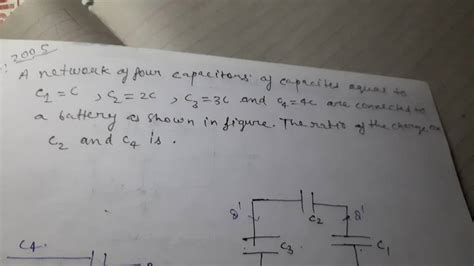 2005
A network of four capacitors of capacites equal to
C1 = C , C2 = 2C , C3 = 3C and C4 = 4C are connected to
a battery as shown in figure. The ratio of the charge on
C2 and C4 is .
q' C2 q'
C4 C3 C1